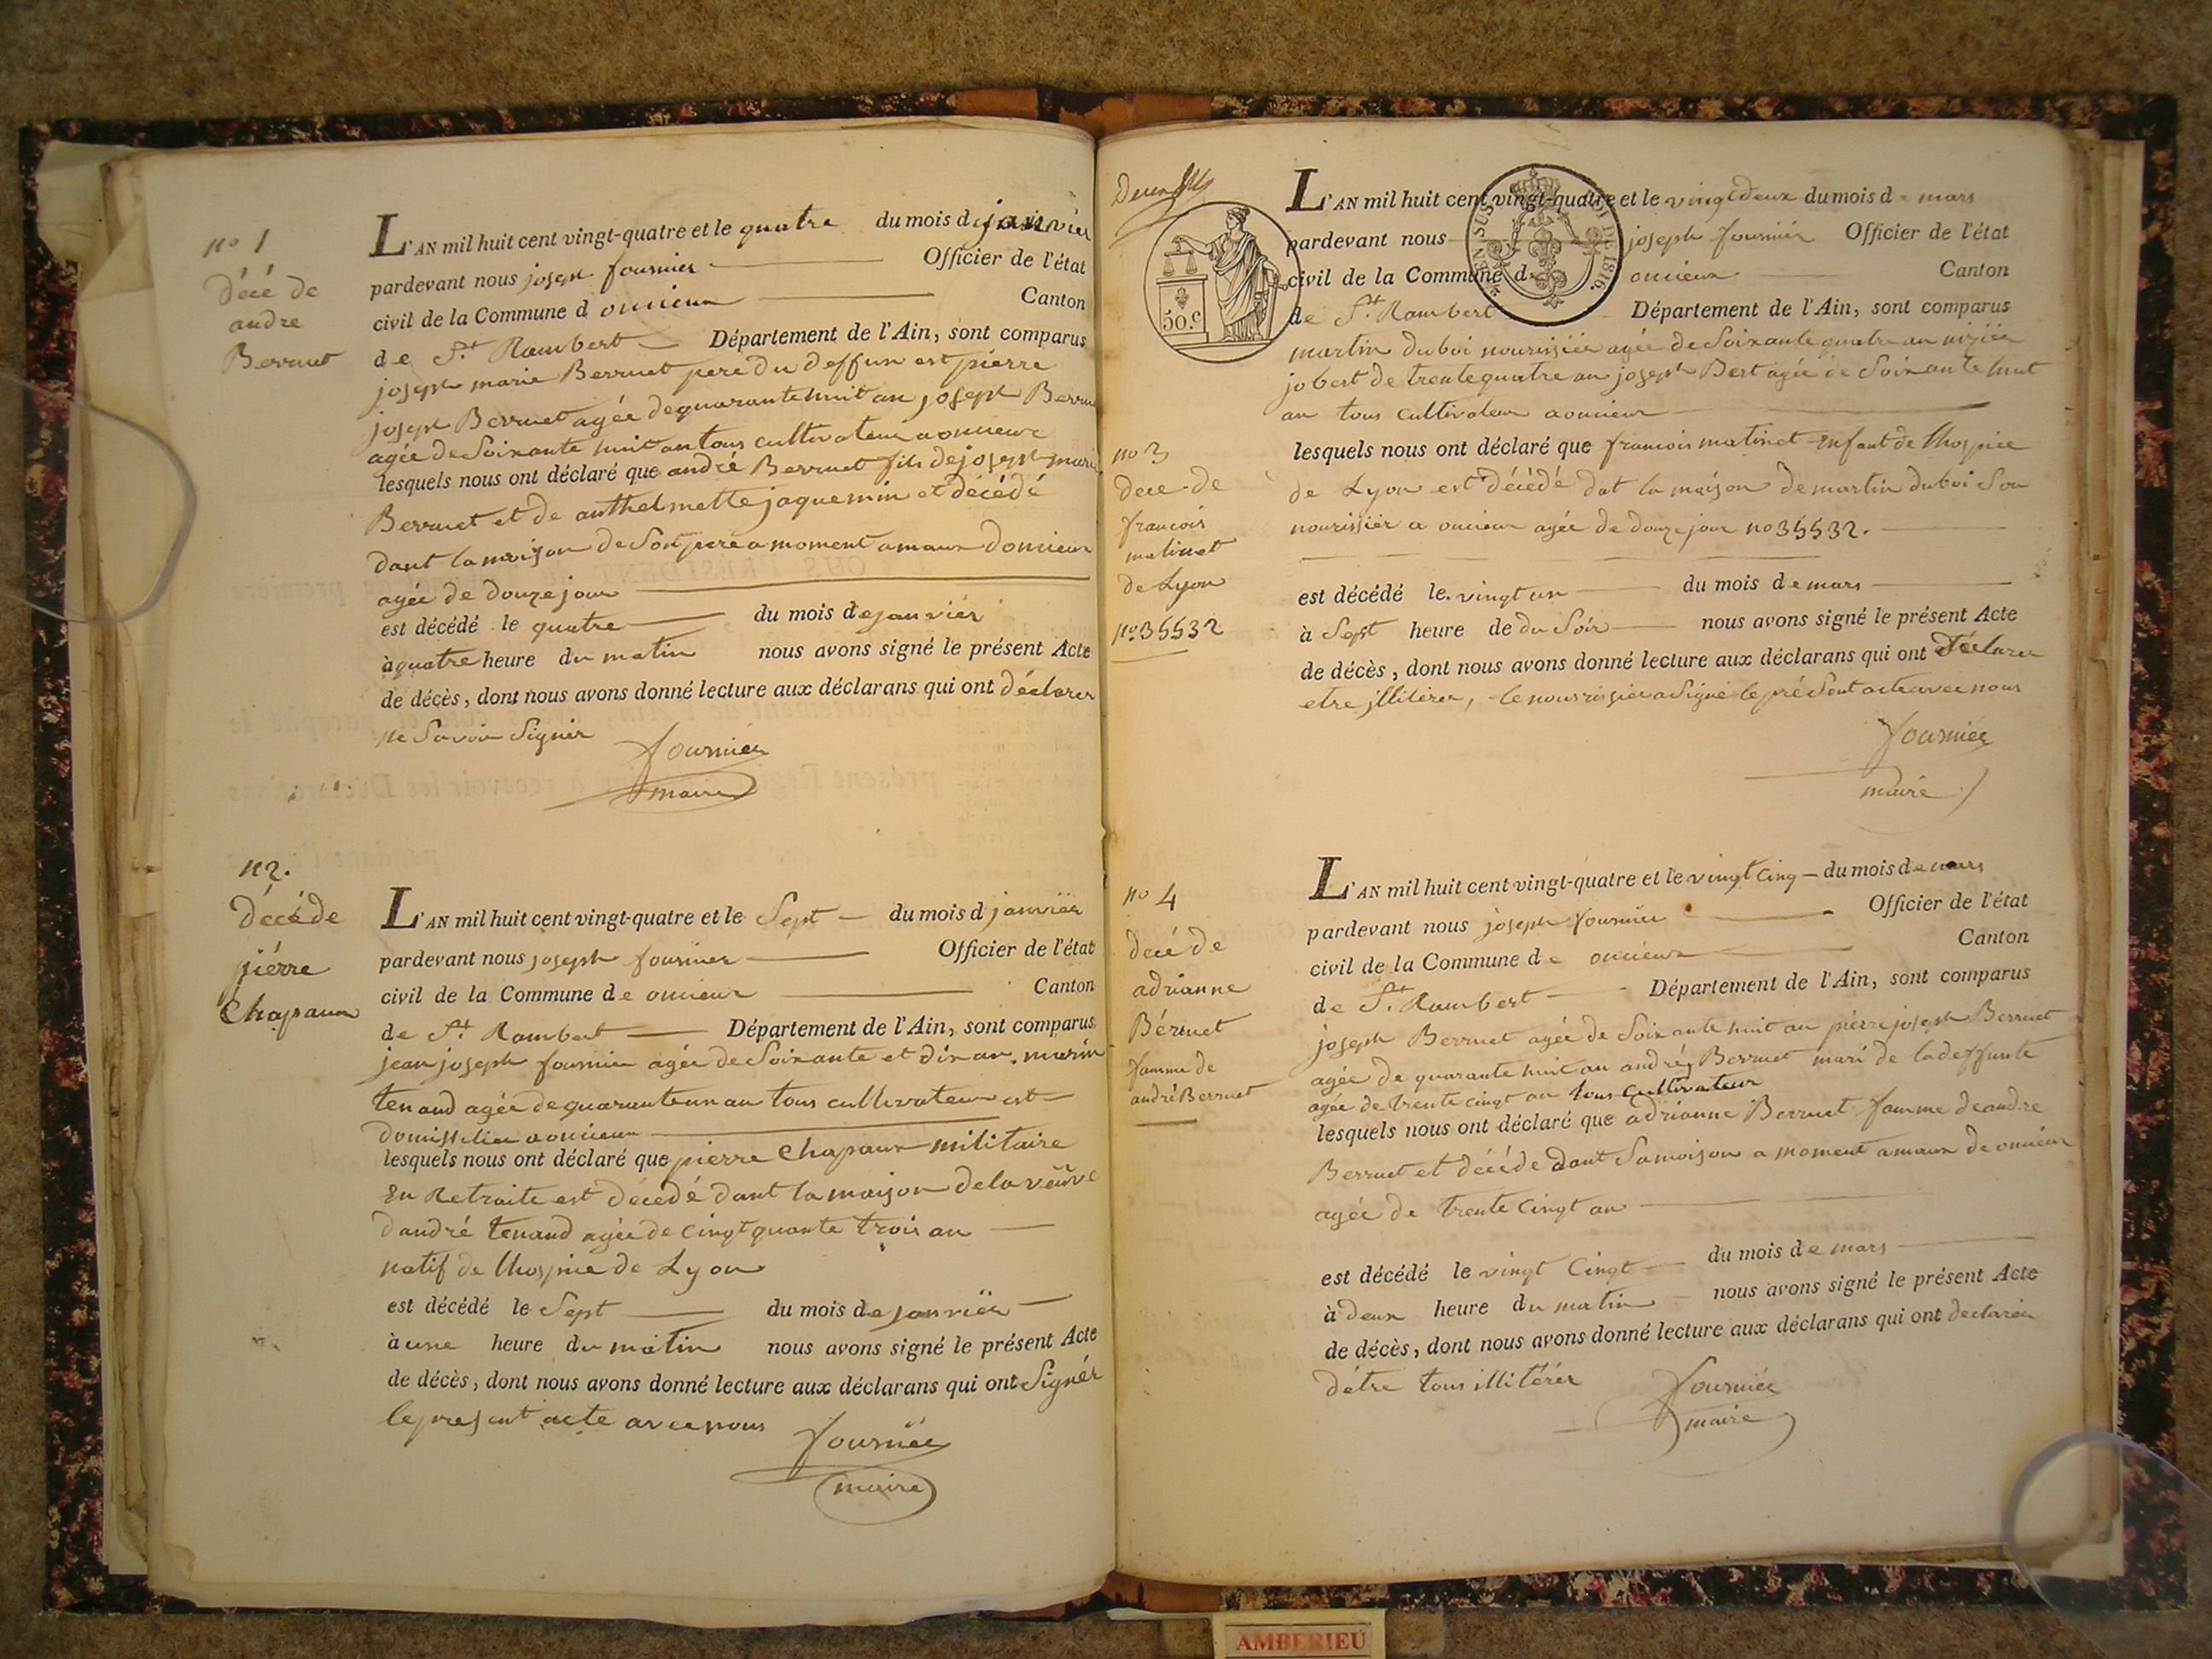 no 1
décé de
andre
Berruet
L'AN mil huit cent vingt-quatre et le quatre du mois de janvier
pardevant nous joseph fournier Officier de l'état
civil de la Commune d onieux Canton
de St. Rambert Département de l'Ain, sont comparus
joseph marie Berruet pere du deffun est pierre
joseph Berruet agée de quarante huit an joseph Berruet
agée de Soixante huit an tous cultivateur a onieux
lesquels nous ont déclaré que andré Berruet fils de joseph marie
Berruet et de anthelmette jaquemin et décédé
dant la maison de Sont pere a moment amaux donieux
agée de douze jour
est décédé le quatre du mois de janviér
à quatre heure du matin nous avons signé le présent Acte
de décès, dont nous avons donné lecture aux déclarans qui ont déclarer
ne Savoir Signér
fourniér
maire
n2.
décé de
piérre
Chapaux
L'AN mil huit cent vingt-quatre et le Sept du mois d janviér
pardevant nous joseph fournier Officier de l'état
civil de la Commune de onieux Canton
de St. Rambert Département de l'Ain, sont comparus
jean joseph fournier agée de Soixante et dix an. marin
tenand agée de quarante un an tous cultivateur est
domissilier a onieux
lesquels nous ont déclaré que pierre Chapaux militaire
En Retraite est décedé dant la maison de la veuve
d'andré tenand agée de cingtquante trois an
natif de lhospice de Lyon
est décédé le Sept du mois de janviér
à une heure du matin nous avons signé le présent Acte
de décès, dont nous avons donné lecture aux déclarans qui ont Signér
le present acte avec nous
fourniér
maire
50.c
no 3
dece de
francois
matinet
de Lyon
no 35532
L'AN mil huit cent vingt-quatre et le vingt deux du mois de mars
pardevant nous joseph fourniér Officier de l'état
civil de la Commune de onieux Canton
de St. Rambert Département de l'Ain, sont comparus
martin duboi nourissiér agée de Soixante quatre an niziér
jobert de trente quatre an joseph Best agée de Soixante huit
an tous cultivateur a onieux
lesquels nous ont déclaré que francois matinet Enfant de lhospice
de Lyon est décédé dat la maison de martin duboi Son
nourissiér a onieux agée de douze jour no 35532.
est décédé le vingt un du mois de mars
à Sept heure de du Soir nous avons signé le présent Acte
de décès, dont nous avons donné lecture aux déclarans qui ont déclarer
etre illitérer, le nourrissiér a Signé le présent acte avec nous
fourniér
maire
no 4
decé de
adrianne
Béruet
famme de
andré Berruet
L'AN mil huit cent vingt-quatre et le vingt cinq du mois de mars
pardevant nous joseph fourniér Officier de l'état
civil de la Commune de onieux Canton
de St. Rambert Département de l'Ain, sont comparus
joseph Berruet agée de Soixante huit an pierre joseph Berruet
agée de quarante huit an andré Berruet mari de la deffunte
agée de trente cingt an tous Cultivateur
lesquels nous ont déclaré que adrianne Berruet famme de andre
Berruet et décéde dant Sa maison a moment amaux de onieux
agée de trente cingt an
est décédé le vingt Cingt du mois de mars
à deux heure du matin nous avons signé le présent Acte
de décès, dont nous avons donné lecture aux déclarans qui ont declarér
détre tous illitérér
fourniér
maire
AMBERIEU